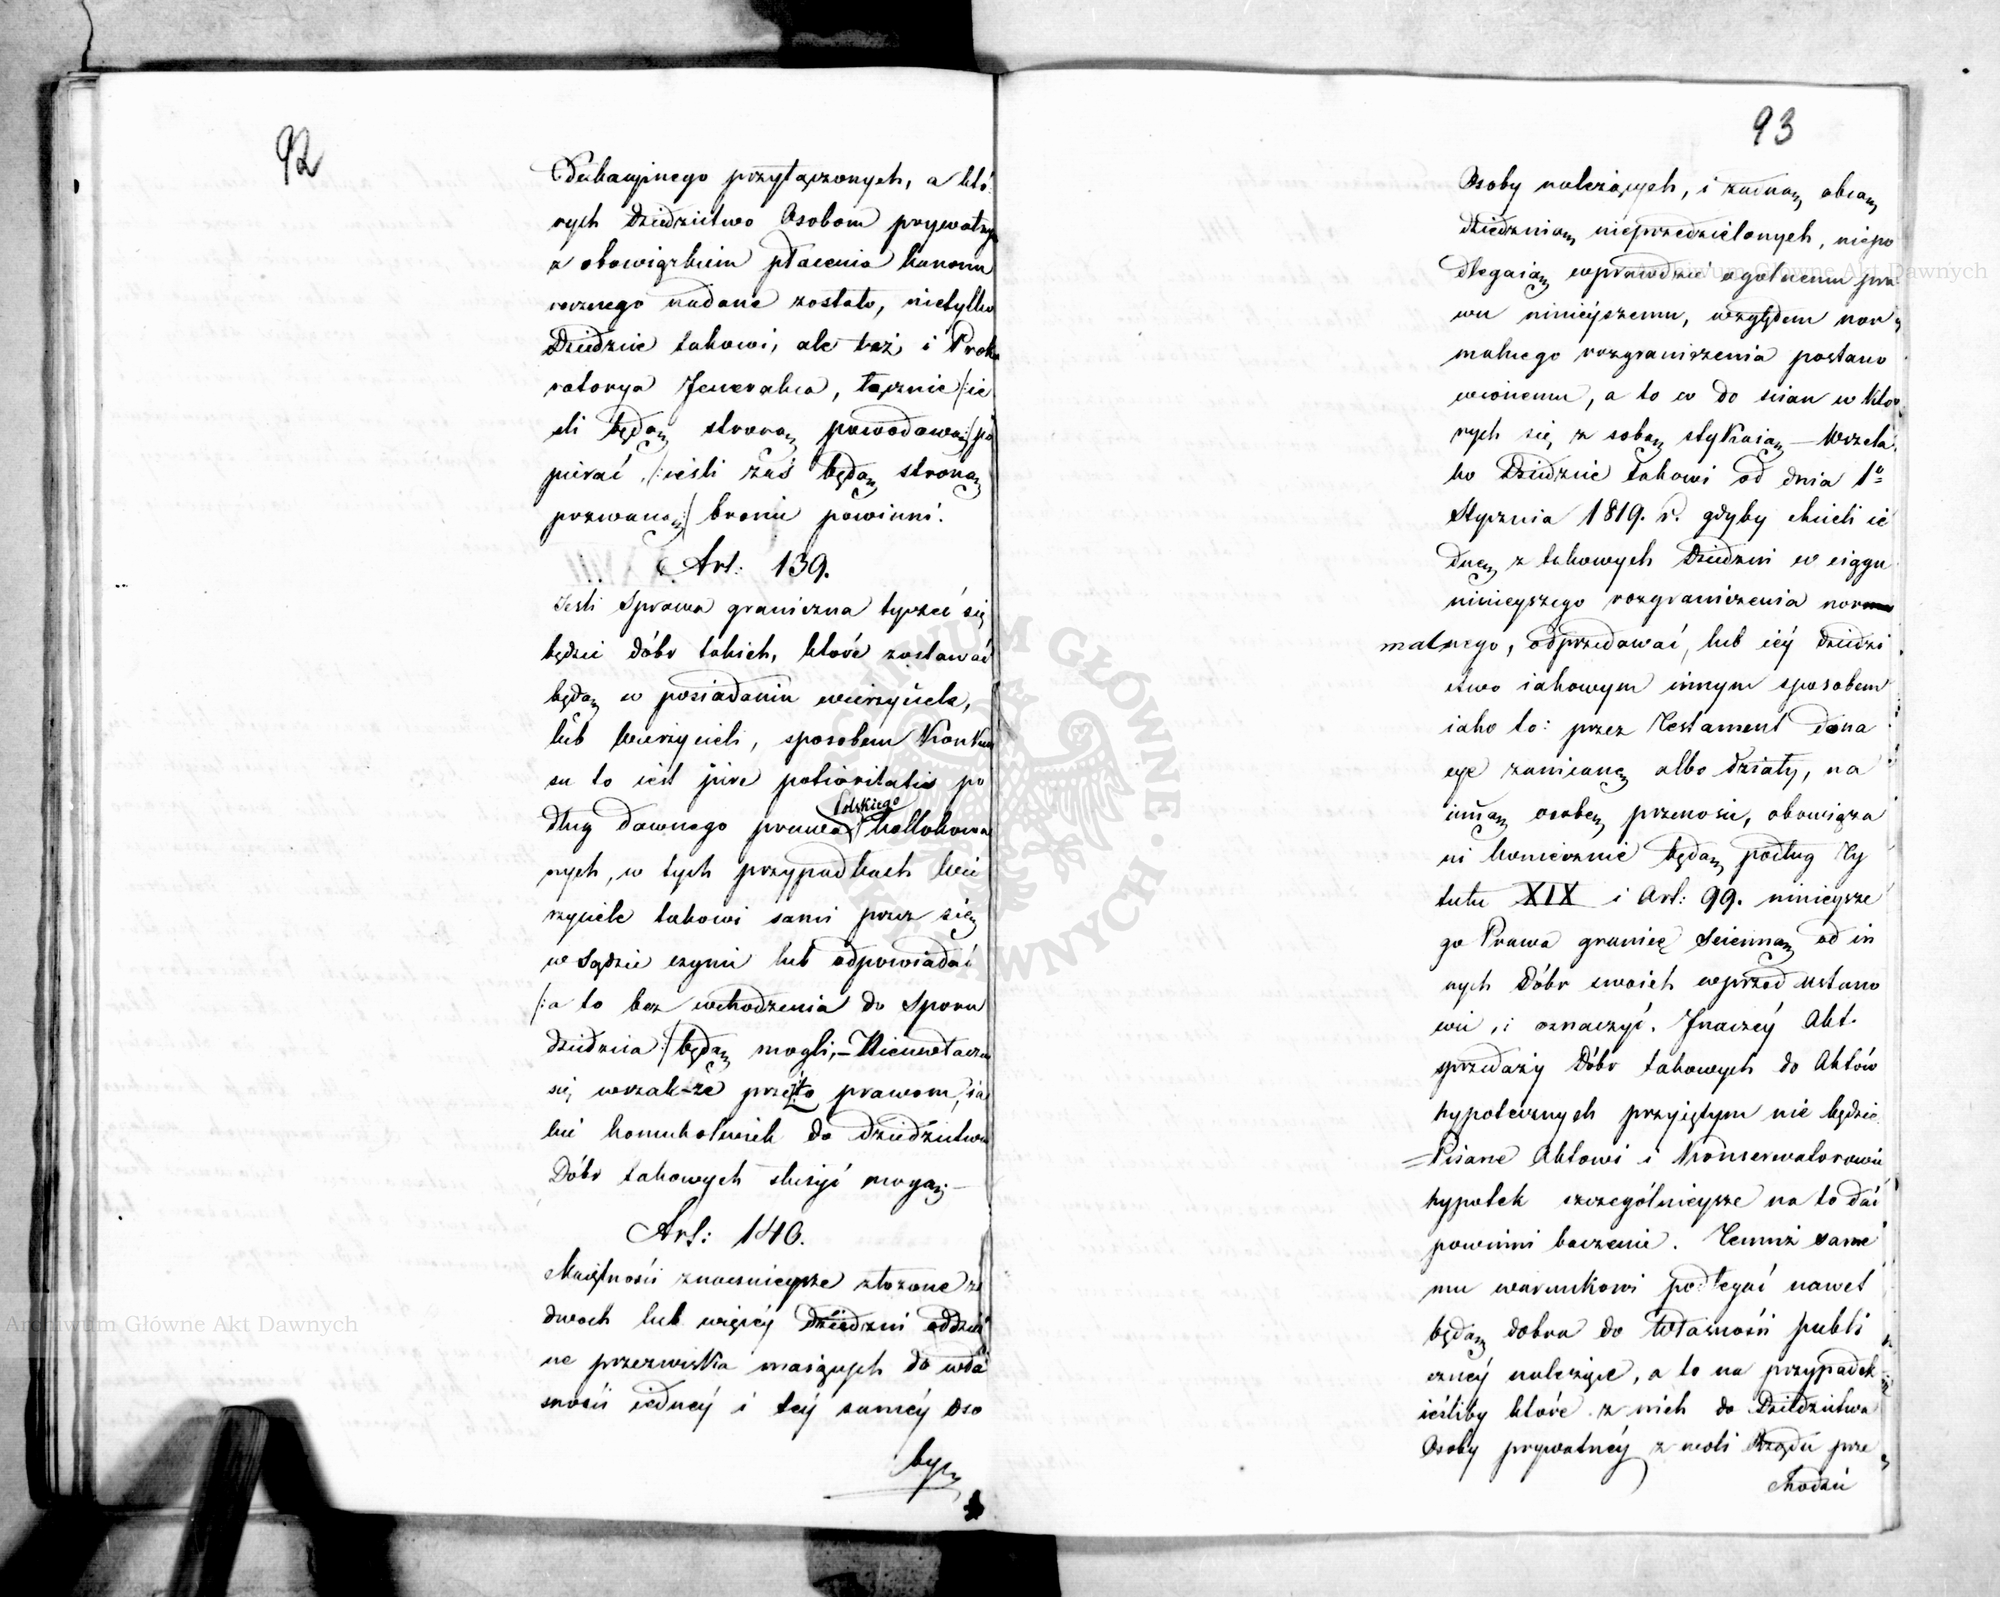 92
Edukacyjnego przyłączonych, a któ:
rych Dziedzictwo Osobom prywatny
z obowiązkiem płacenia kanonu
rocznego nadane zostało, nietylko
Dziedzic takowi, ale też i Proku
ratorya Jeneralna, łącznie /:ie
śli będą stroną powodową:/ po
pierać, /:ieśli zaś będą stroną
pozwaną:/ bronić powinni.
Art: 139.
Jeśli Sprawa graniczna tyczeć się
będzie dóbr takich, które zostawać
będą w posiadaniu wierzyciela,
lub Wierzycieli, sposobem Konkur
su to iest jure potioritatis po
dług dawnego prawa Polskiego kollokowa
nych, w tych przypadkach Wie
rzyciele takowi sami przez się
w Sądzie czynić lub odpowiadać
/:a to bez wchodzenia do Sporu
dziedzica:/ będą mogli, – Nieuwłacza
się wszak-że przez to prawom, ia
kie komukolwiek do dziedzictwa
Dóbr takowych służyć mogą. –
Art: 140.
Maiętności znacznieysze złożone ze
dwoch lub więcéy Dziedzin oddziel
ne przezwiska maiących do wła
sności iednéy i téy saméy Oso
by
93
Osoby należących, i żadną obcą
dziedziną nieprzedzielonych, niepo
dlegaią wprawdzie ogólnemu pra
wu ninieyszemu, względem nor
malnego rozgraniczenia postano
wionemu, a to co do ścian w któ
rych się z sobą stykaią – Wszela
ko Dziedzic takowi od dnia 1º
Stycznia 1819. r. gdyby chcieli ie
dnę z takowych Dziedzin w ciągu
ninieyszego rozgraniczenia nor
malnego, odprzedawać, lub iéy dziedzi
ctwo iakowym innym sposobem
iako to: przez Testament dona
cye zamianę albo działy, na
inną osobę przenosić, obowiąza
ni koniecznie będą podług Ty
tułu XIX i Art: 99. ninieysze
go Prawa granicę ścienną od in
nych Dóbr swoich wprzód ustano
wić, i oznaczyć. Inaczéy Akt.
sprzedaży Dóbr takowych do Aktów
hypotecznych przyiętym nie będzie
= Pisarze Aktowi i Konserwatorowie
hypotek szczególnieysze na to dać
powinni baczenie. Temuż same
mu warunkowi podlegać nawet
będą dobra do Własności publi
cznéy należące, a to na przypadek
ieśliby które z nich do Dziedzictwa
Osoby prywatnéy z woli Rządu prze
chodzić
Archiwum Główne Akt Dawnych
Archiwum Główne Akt Dawnych
ARCHIWUM GŁÓWNE AKT DAWNYCH